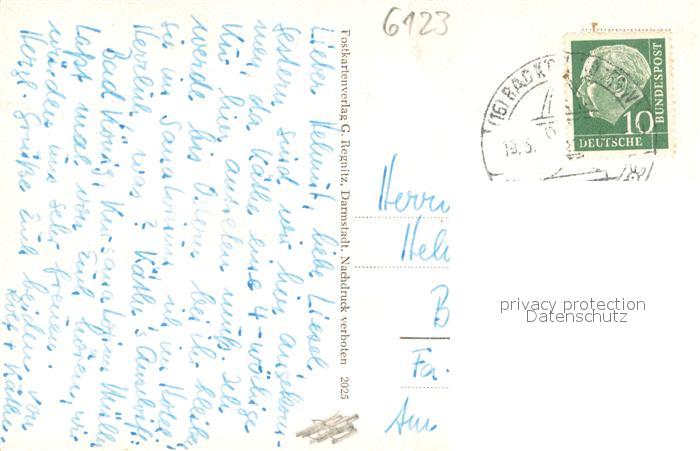 6123
Lieber Helmut, liebe Liesel,
Gestern sind wir hier angekom-
men, da Käthe eine 4-wöchige
Kur hier antreten muß. Ich
werde bis Ostern bei ihr bleiben
sie im Sanatorium, ich im Hotel.
Herrlich was? Käthes Anschrift:
Bad König, Kursanatorium Müller
Laßt mal von Euch hören, wir
würden uns sehr freuen.
Herzl. Grüße Euch beiden von
Käthe
Postkartenverlag G. Regnitz, Darmstadt. Nachdruck verboten 2025
(16) BAD KÖNIG
19.3.
10
DEUTSCHE
BUNDESPOST
Herrn
Hel
B
Fa.
Am
privacy protection
Datenschutz